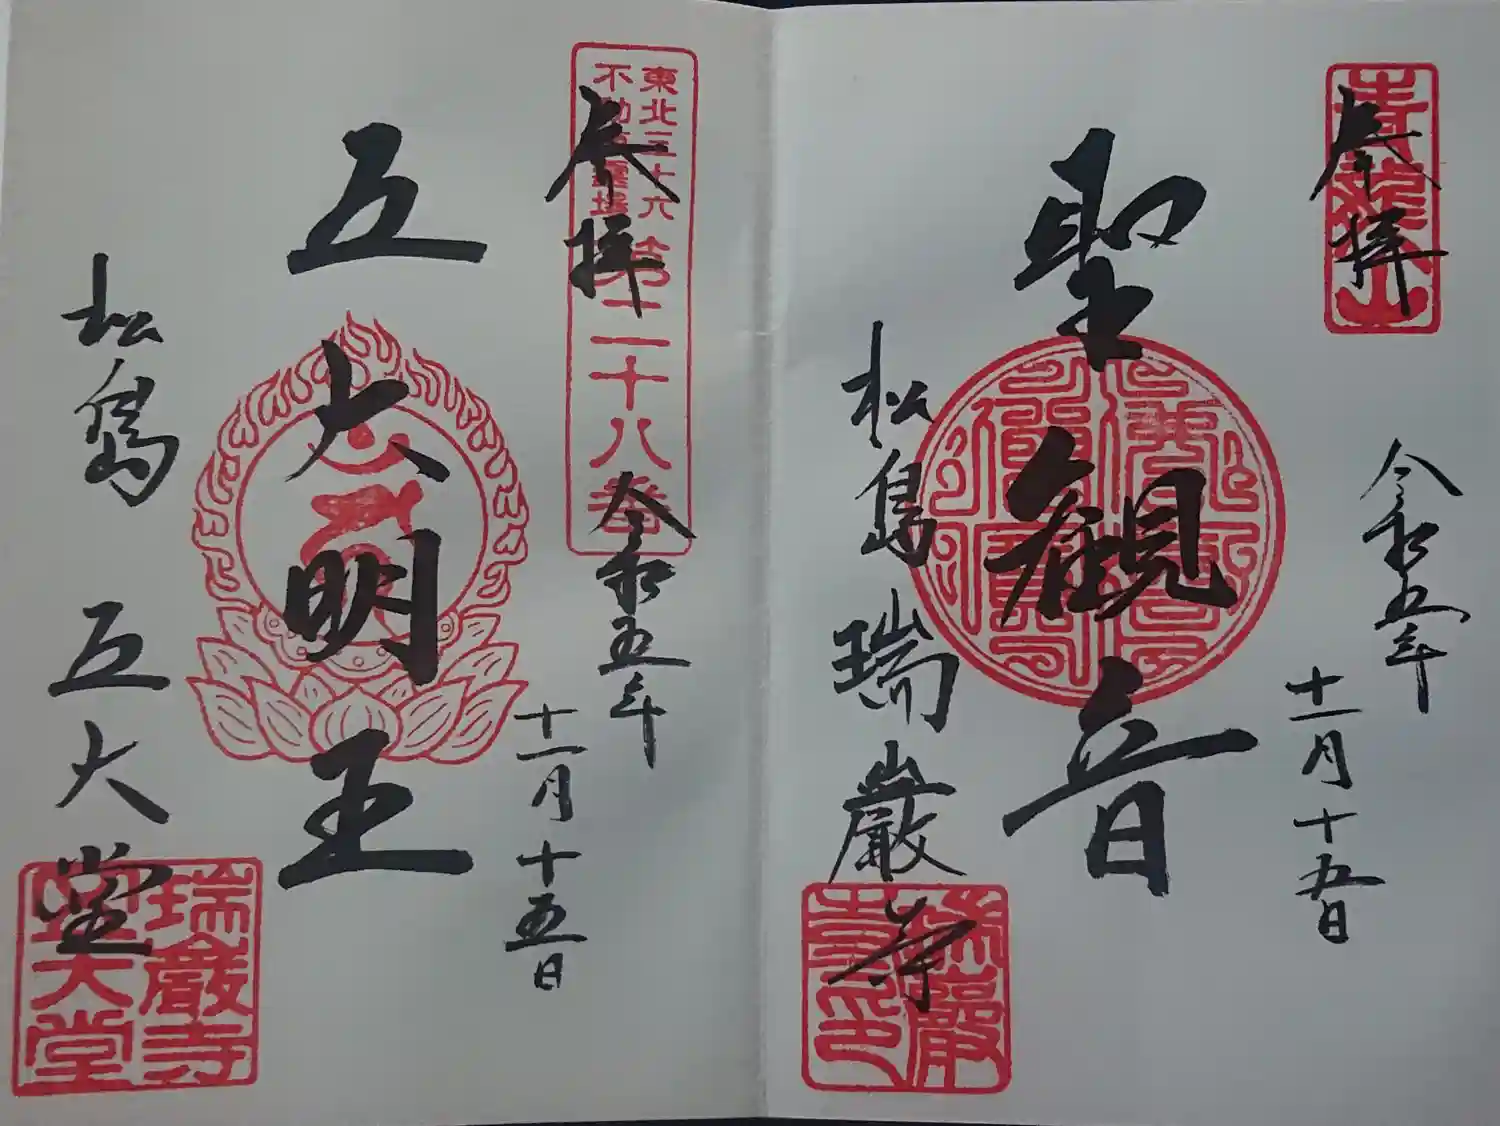 奉拝
青龍山
令和五年
十一月十五日
聖観音
松島 瑞巌寺
瑞巌
寺印
奉拝
東北三十六
不動尊霊場
第二十八番
令和五年
十一月十五日
五大明王
松島 五大堂
瑞巌寺
五大堂